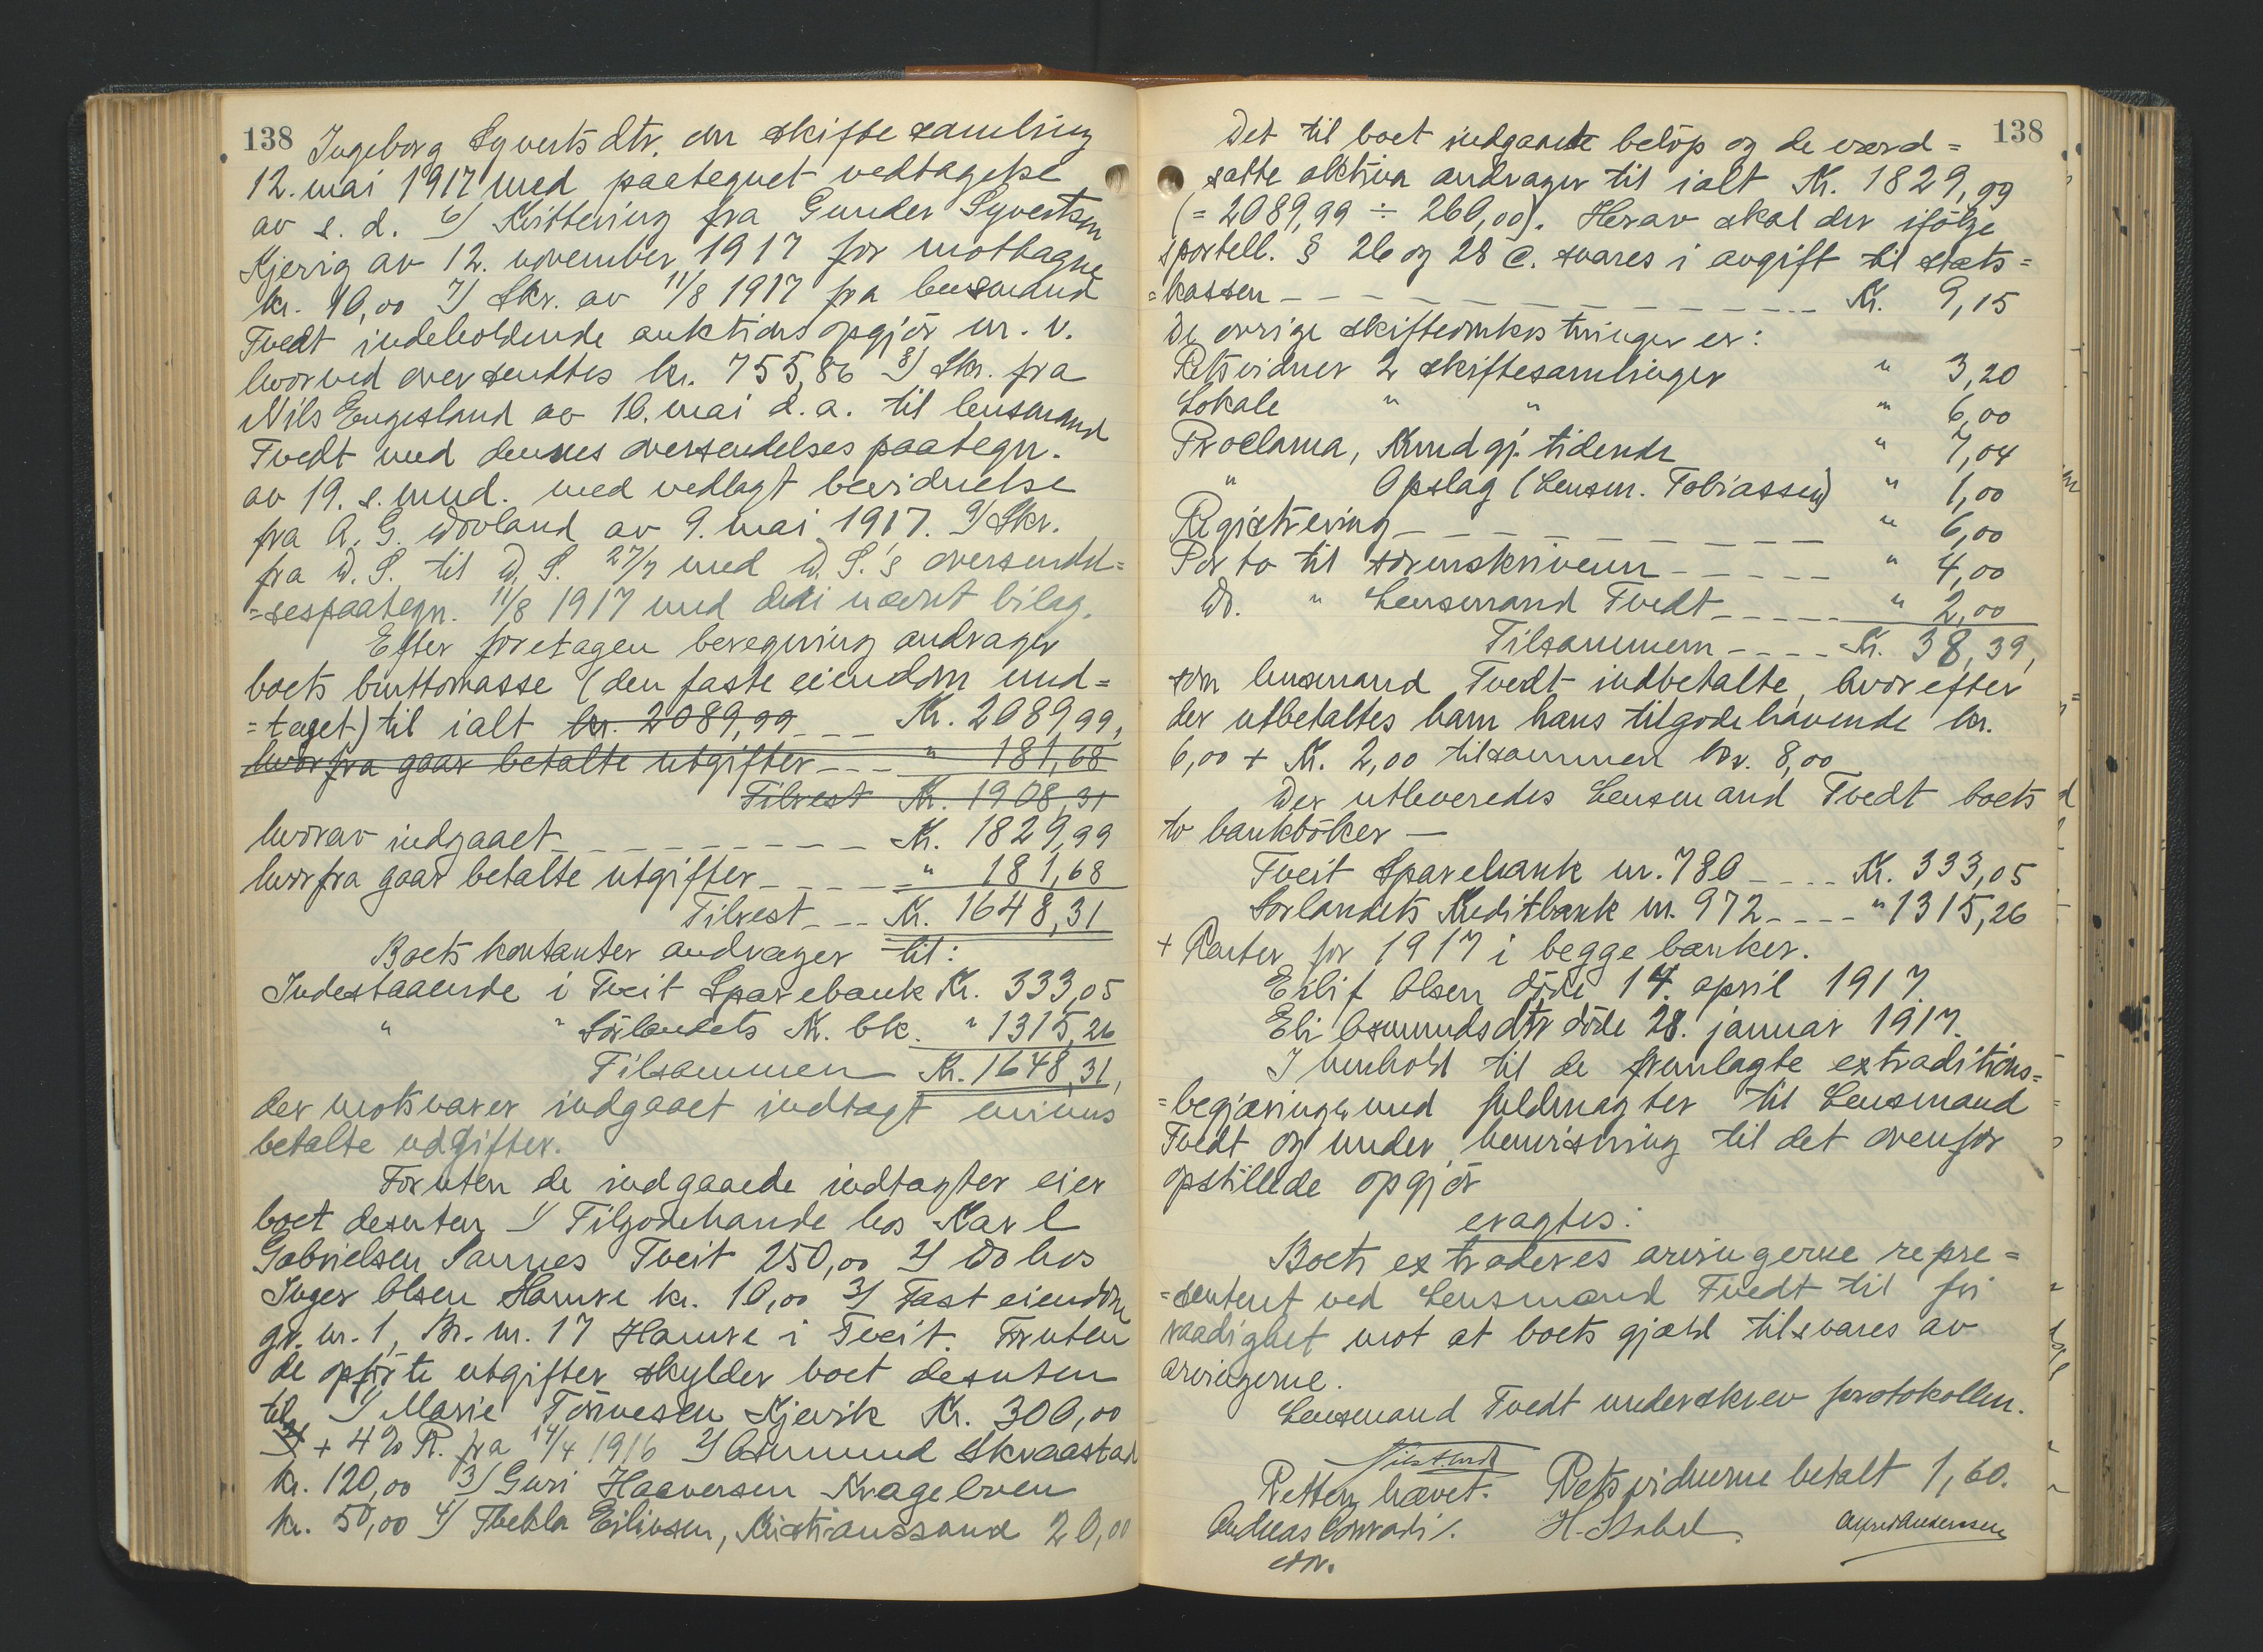 138
Ingeborg Syvertsdtr. om skiftesamling
12. mai 1917 med paategnet vedtagelse
av s. d. 6) Kvittering fra Gunder Syvertsen
Kjerrig av 12. november 1917 for mothagne
kr. 10,00 7) Skr. av 11/8 1917 fra lensmand
Tvedt indeholdende auktionsopgjör m. v.
hvorved oversendtes kr. 755,86 8) Skr. fra
Nils Engesland av 10. mai d. a. til lensmand
Tvedt med dennes oversendelsespaategn.
av 19. s. mnd. med vedlagt bevidnelse
fra A. G. Dovland av 9. mai 1917. 9) Skr.
fra D. S. til D. S. 27/7 med D. S.'s oversendel=
=sespaategn. 11/8 1917 med deri nævnt bilag.
Efter foretagen beregning andrager
boets bruttomasse (den faste eiendom und=
=taget) til ialt kr. 2089,99 --- Kr. 2089,99,
hvorfra gaar betalte utgifter --- " 181,68
Tilrest Kr. 1908,31
hvorav indgaaet --------- Kr. 1829,99
hvorfra gaar betalte utgifter ----- " 181,68
Tilrest --- Kr. 1648,31
Boets kontanter andrager til:
Indestaaende i Tveit Sparebank Kr. 333,05
" " Sörlandets Kr. bk. " 1315,26
Tilsammen Kr. 1648,31,
der motsvarer indgaaet indtægt minus
betalte udgifter.
Foruten de indgaaede indtægter eier
boet desuten 1) Tilgodehavende hos Karl
Gabrielsen Sannes Tveit 250,00 2) Do hos
Inger Olsen Hamre kr. 10,00 3) Fast eiendom
gr. nr. 1, Br. nr. 17 Hamre i Tveit. Foruten
de opförte utgifter skylder boet desuten
til 1) Marie Tönnesen Kjevik Kr. 300,00
+ 4 % R. fra 14/4 1916 2) Osmund Skraastad
kr. 120,00 3) Guri Haaversen Krageboen
kr. 50,00 4) Thekla Eilivsen, Kristianssand 20,00
138
Det til boet indgaaede belöp og de værd=
satte aktiva andrager til ialt Kr. 1829,99
(= 2089,99 ÷ 260,00). Herav skal der ifölge
sportell. § 26 og 28 c. svares i avgift til stats=
=kassen ------------- Kr. 9,15
De övrige skifteomkostninger er:
Retsvidner 2 skiftesamlinger " 3,20
Lokale " " " 6,00
Proclama, Kundgj. tidende " 7,04
" Opslag (Lensm. Tobiassen) " 1,00
Registrering --------- " 6,00
Porto til sorenskriveren ------ " 4,00
Do. " Lensmand Tvedt ------ " 2,00
Tilsammen ---- Kr. 38,39,
som lensmand Tvedt indbetalte, hvorefter
der utbetaltes ham hans tilgodehavende kr.
6,00 + Kr. 2,00 tilsammen kr. 8,00
Der utleveredes Lensmand Tvedt boets
to bankböker —
Tveit Sparebank nr. 780 ---- Kr. 333,05
Sörlandets Kreditbank nr. 972 ---- " 1315,26
+ Renter for 1917 i begge banker.
Eilif Olsen döde 14. april 1917.
Eli Osmundsdtr döde 28. januar 1917.
I henhold til de fremlagte extraditions=
=begjæringer med fuldmagter til Lensmand
Tvedt og under henvisning til det ovenfor
opstillede opgjör
eragtes:
Boet extraderes arvingerne repre=
=senteret ved Lensmand Tvedt til fri
raadighet mot at boets gjæld tilsvares av
arvingerne.
Lensmand Tvedt underskrev protokollen.
Nils Tvedt
Retten hævet. Retsvidnerne betalt 1,60.
Andreas Conradi. H. Stabel. Alfred Anderssen